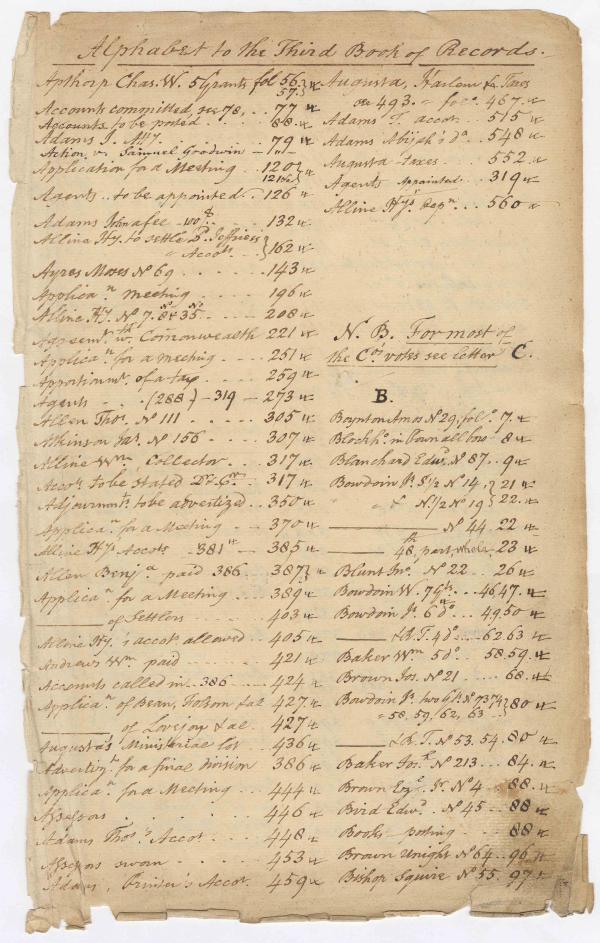 Alphabet to the Third Book of Records.
Apthorp Chas. W. 5 Grants fol 56. 57.
Accounts committed, see 78, 77
Accounts to be posted 88
Adams J. 79
Action v. Samuel Goodwin
Application for a Meeting 120
Agents to be appointed 126
Adams 132
Alline Hy. to settle D. Jeffries's Accots. 162
Ayres Moses No 69 143
Applican. meeting 196
Alline Hy. No 7. & No 35 208
Agreemt. wth. Commonwealth 221
Applican. for a meeting 251
Apportionmt. of a tax 259
Agents (288) - 319 - 273
Allen Thos. No 111 305
Atkinson Jas. No 156 307
Alline Wm. Collector 317
Accots. to be stated Dr. Cr. 317
Adjournmts. to be advertized 350
Applican. for a Meeting 370
Alline Hy. Accots 381 - 385
Allen Benja. paid 386 387
Applican. for a Meeting 389
of Settlers 403
Alline Hy.'s accot allowed 405
Andrews Wm. paid 421
Accounts called in 386 424
Applican. of Bean, Folsom & al 427
of Lovejoy & al 427
Augusta's Ministerial lot 436
Advertizg. for a final division 386
Applican. for a Meeting 444
Assessors 446
Adams Thos.'s Accot 448
Assessors sworn 453
Adams, Printer's Accot. 459
Augusta, Harlem for Taxes
493. fo. 467.
Adams T. accot 515
Adams Abijah's do. 548
Augusta taxes 552
Agents Appointed 319
Alline Hy's Repn. 560
N. B. For most of
the Coy. votes see letter C.
B.
Boynton Amos No 29, folo. 7.
Block ho. in Pownallboro 8
Blanchard Edwd. No 87 9
Bowdoin Js. S 1/2 No 14, 21
& N. 1/2 No 19 22.
No 44. 22
48, part, whole 23
Blunt Jno. No 22 26
Bowdoin W. 7 Gts. 46.47.
Bowdoin Js. 6 do. 49.50
& B. T. 4 do. 62.63
Baker Wm. 5 do. 58.59.
Brown Jos. No 21 68.
Bowdoin Js. two Gts. No 73.74 80
58, 59, 62, 63
& B. T. No 53. 54. 80
Baker Jos. No 213 84.
Brown Esqr. Jr. No 4 88.
Bird Edwd. No 45 88
Books posting 88
Brown Unight No 64 96
Bishop Squire No 55. 97